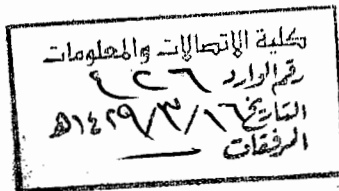 كلية الاتصالات والمعلومات
رقم الوارد
التاريخ ١٤٢٩/٣/١٦هـ
المرفقات